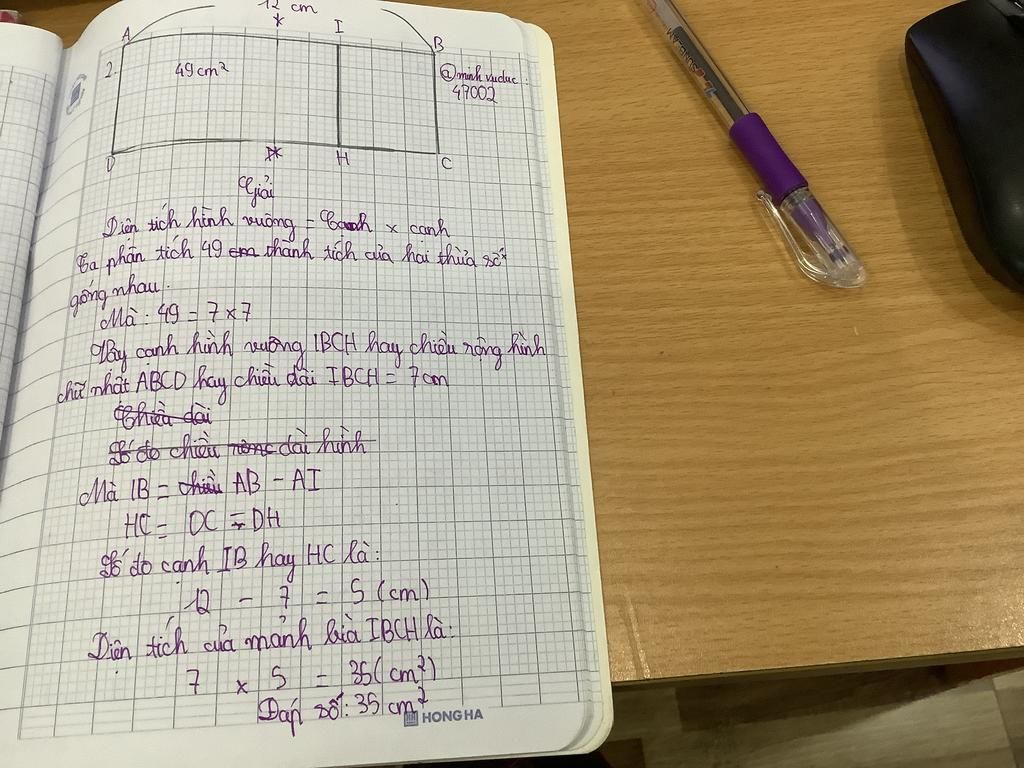 12 cm
A * I B
2. 49cm² @minh vuduc.
47002
D * H C
Giải
Diện tích hình vuông = Cạnh x cạnh
Ta phân tích 49 cm thành tích của hai thừa số
giống nhau.
Mà: 49 = 7 x 7
Vậy cạnh hình vuông IBCH hay chiều rộng hình
chữ nhật ABCD hay chiều dài IBCH = 7cm
Chiều dài
Số đo chiều rộng dài hình
Mà IB = chiều AB - AI
HC = DC - DH
Số đo cạnh IB hay HC là:
12 - 7 = 5 (cm)
Diện tích của mảnh bìa IBCH là:
7 x 5 = 35(cm²)
Đáp số: 35 cm²
HONG HA